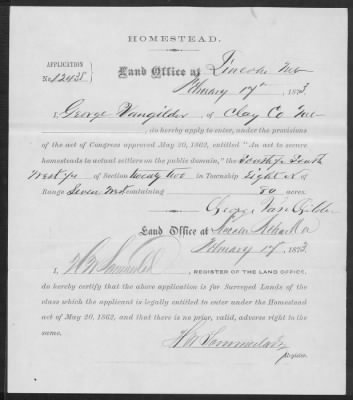 HOMESTEAD.
APPLICATION
No. 12438
Land Office at Lincoln Neb
February 17th, 1873
I, George Vangilder of Clay Co Neb
, do hereby apply to enter, under the provisions
of the act of Congress approved May 20, 1862, entitled "An act to secure
homesteads to actual settlers on the public domain," the South ½ South
West ¼ of Section twenty two in Township Eight N of
Range Seven West containing 80 acres.
George Van Gilder
Land Office at Lincoln Nebraska
February 17, 1873
I,
, REGISTER OF THE LAND OFFICE,
do hereby certify that the above application is for Surveyed Lands of the
class which the applicant is legally entitled to enter under the Homestead
act of May 20, 1862, and that there is no prior, valid, adverse right to the
same.
Register.